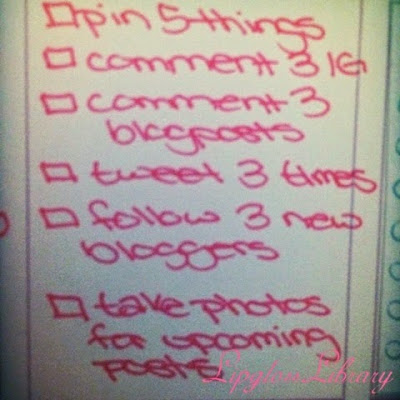 pin 5 things
comment 3 IG
comment 3
blogposts
tweet 3 times
follow 3 new
bloggers
take photos
for upcoming
posts
LipglossLibrary